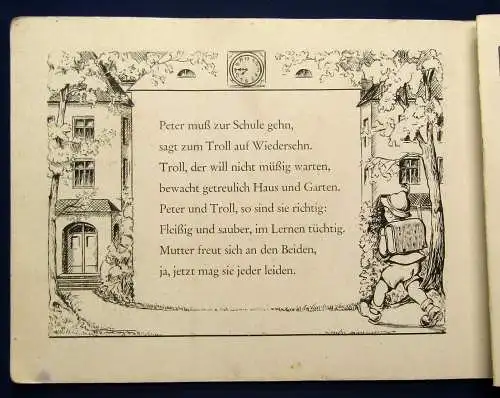 Peter muß zur Schule gehn,
sagt zum Troll auf Wiedersehn.
Troll, der will nicht müßig warten,
bewacht getreulich Haus und Garten.
Peter und Troll, so sind sie richtig:
Fleißig und sauber, im Lernen tüchtig.
Mutter freut sich an den Beiden,
ja, jetzt mag sie jeder leiden.